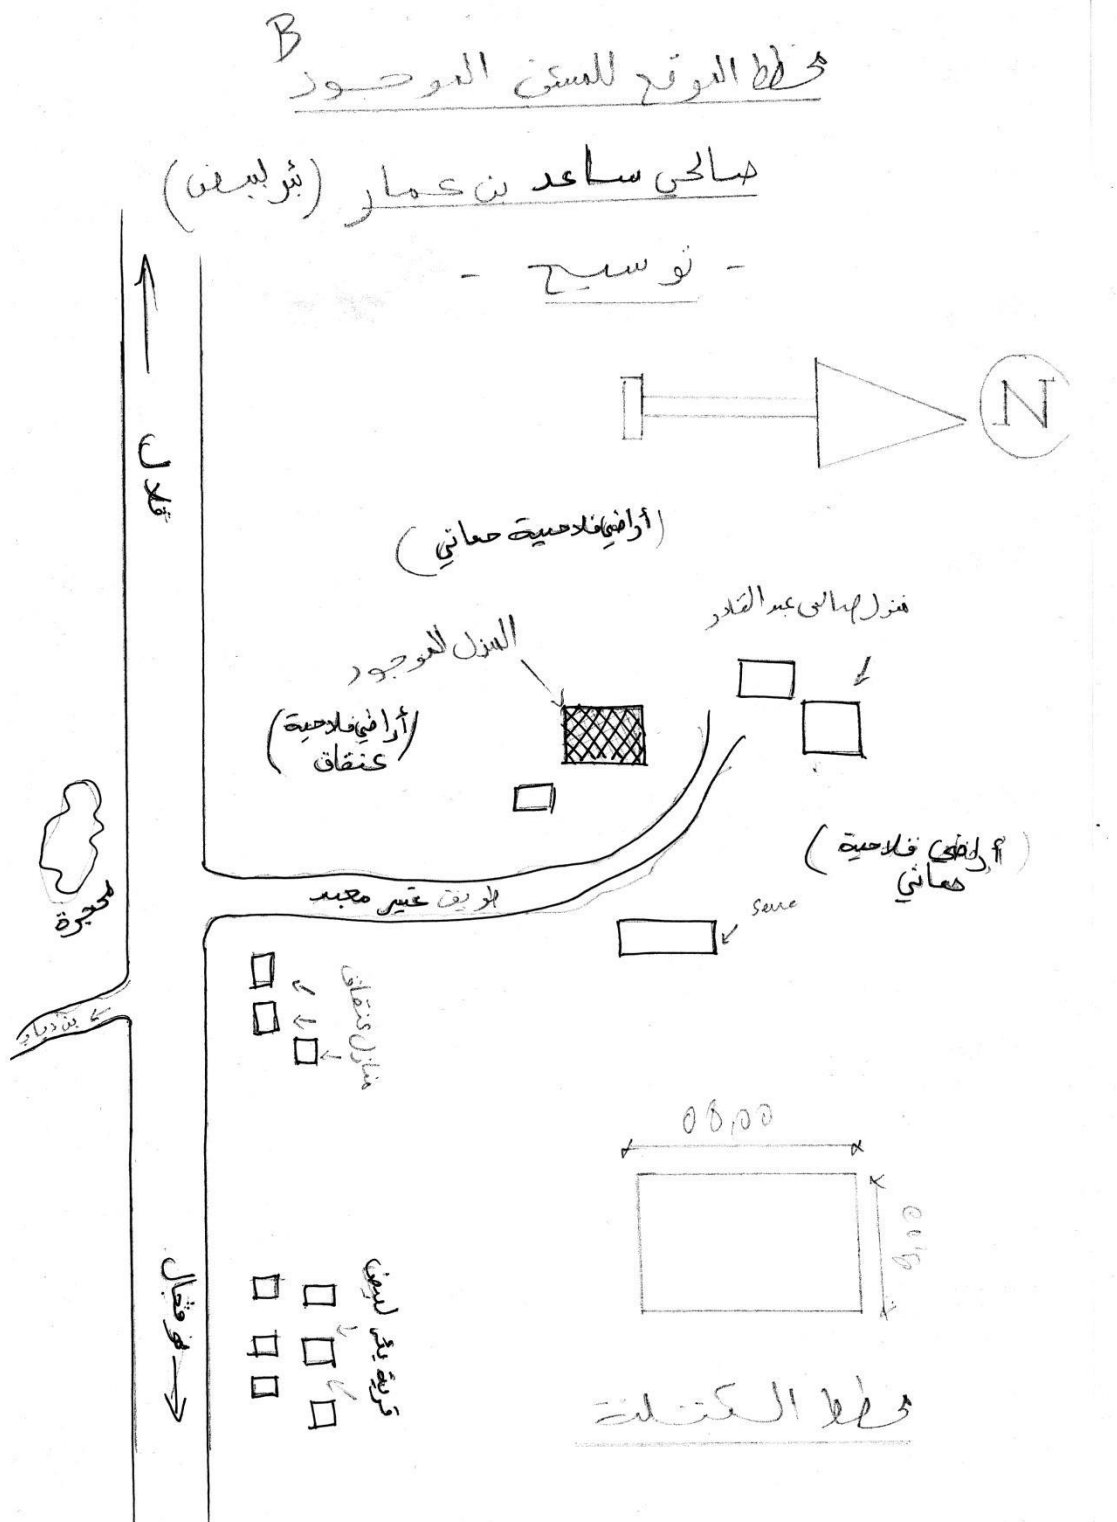 B
مخطط الموقع للسكن الموجود
صالحي ساعد بن عمار (بئر لبيض)
- توسيع -
N
قلال
(أراضي فلاحية حماتي)
منزل صالحي عبد القادر
المنزل الموجود
(أراضي فلاحية
عنقاق)
(أراضي فلاحية
حماتي)
محجرة
طريق غير معبد
serre
منازل عنقاق
بن ذياب
08,00
قرية بئر لبيض
مخطط الكتلة